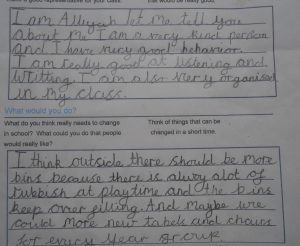 a good representative for your class. that would be really good.
I am Alleyah let me tell you
about me I am a very kind person
and I have very good behavior.
I am really good at listening and
writting. I am also very organised
in my class.
What would you do?
What do you think really needs to change Think of things that can be
in school? What could you do that people changed in a short time.
would really like?
I think outside there should be more
bins because there is alwy alot of
rubbish at playtime and the bins
keep over filling. And Maybe we
could More new tabels and chairs
for every year group